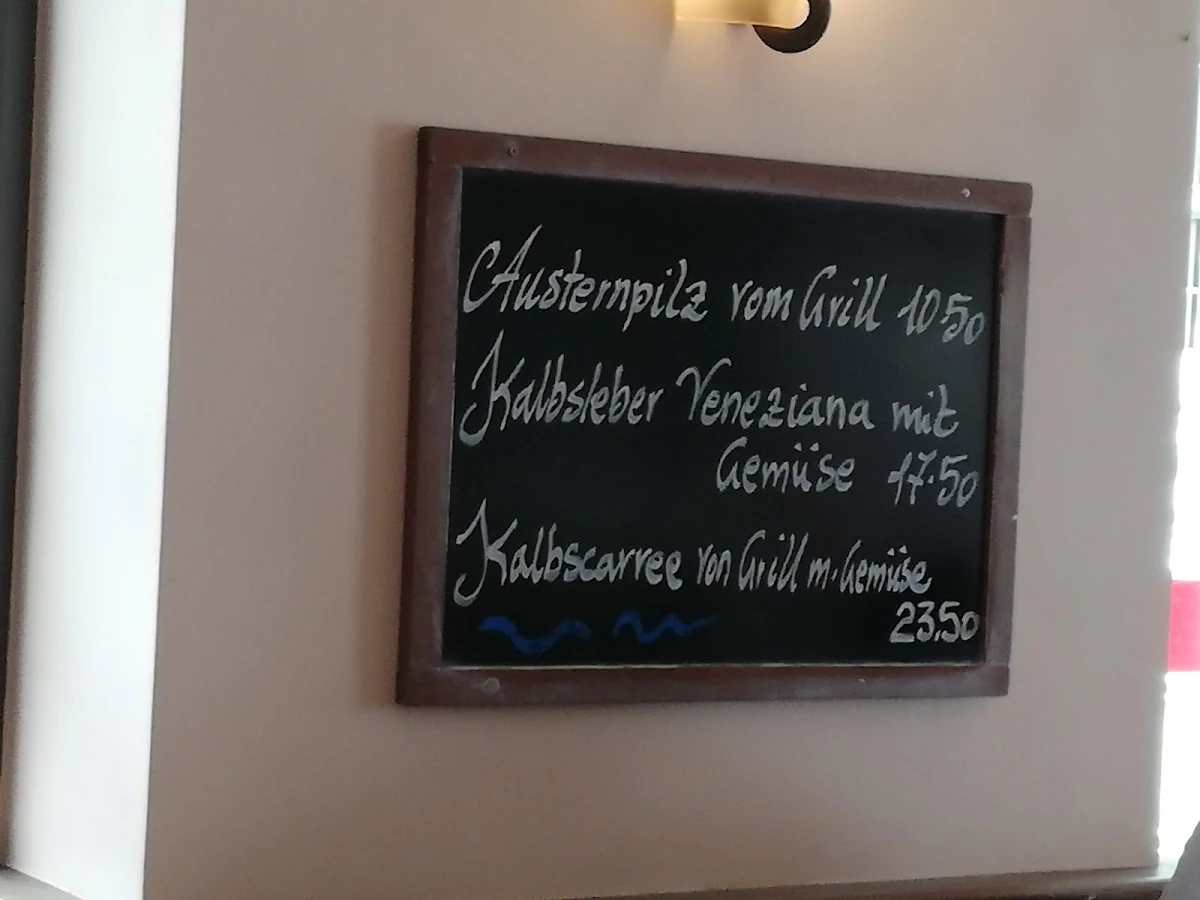 Austernpilz vom Grill 10.50
Kalbsleber Veneziana mit
Gemüse 17.50
Kalbscarree von Grill m. Gemüse
23.50